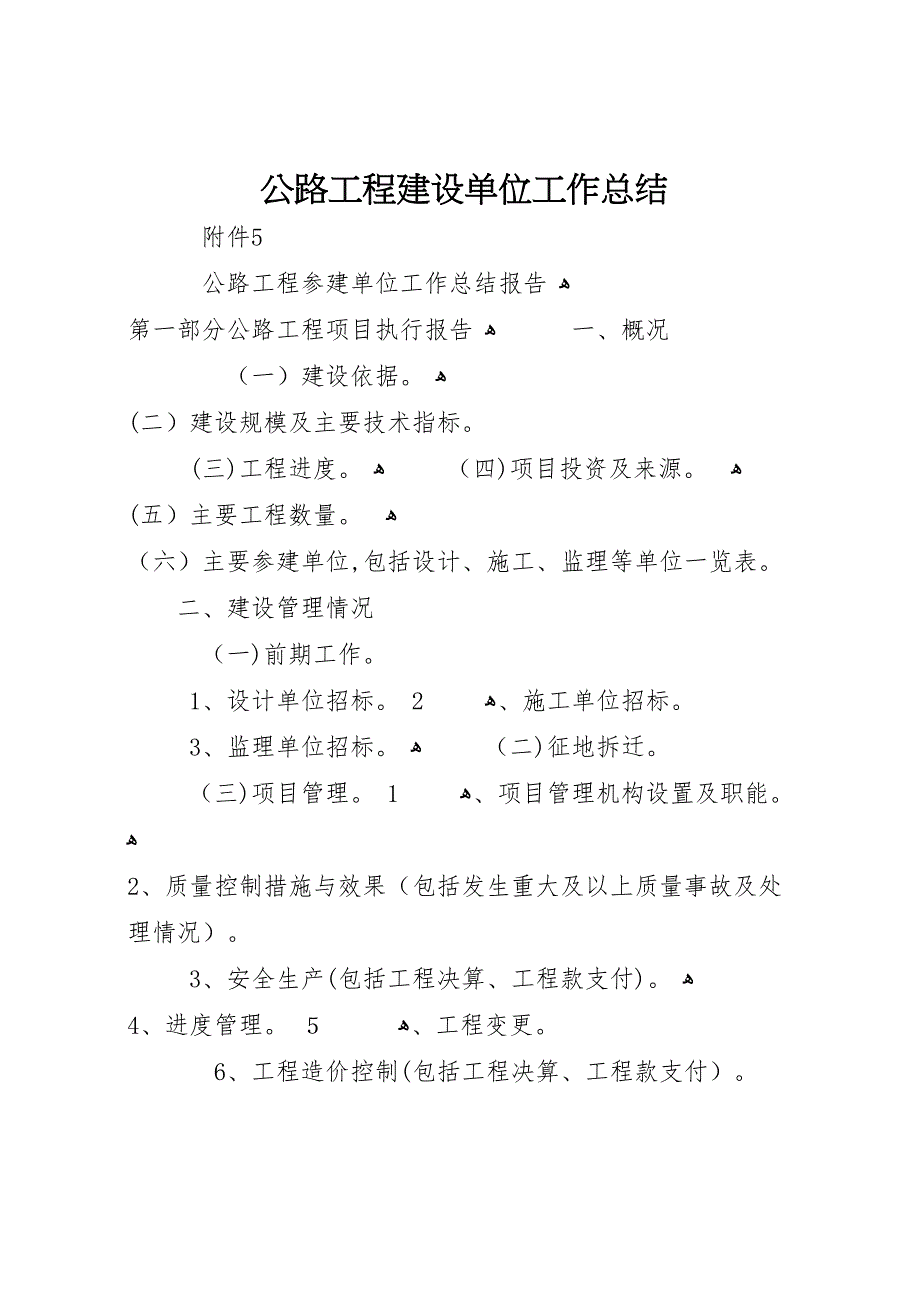 公路工程建设单位工作总结
附件5
公路工程参建单位工作总结报告 ﻫ
第一部分公路工程项目执行报告 ﻫ 一、概况
（一）建设依据。 ﻫ
(二）建设规模及主要技术指标。
(三)工程进度。 ﻫ （四)项目投资及来源。 ﻫ
(五）主要工程数量。 ﻫ
（六）主要参建单位,包括设计、施工、监理等单位一览表。
二、建设管理情况
（一)前期工作。
1、设计单位招标。 2 ﻫ、施工单位招标。
3、监理单位招标。 ﻫ （二)征地拆迁。
（三)项目管理。 1 ﻫ、项目管理机构设置及职能。
ﻫ
2、质量控制措施与效果（包括发生重大及以上质量事故及处
理情况）。
3、安全生产(包括工程决算、工程款支付)。 ﻫ
4、进度管理。 5 ﻫ、工程变更。
6、工程造价控制(包括工程决算、工程款支付）。